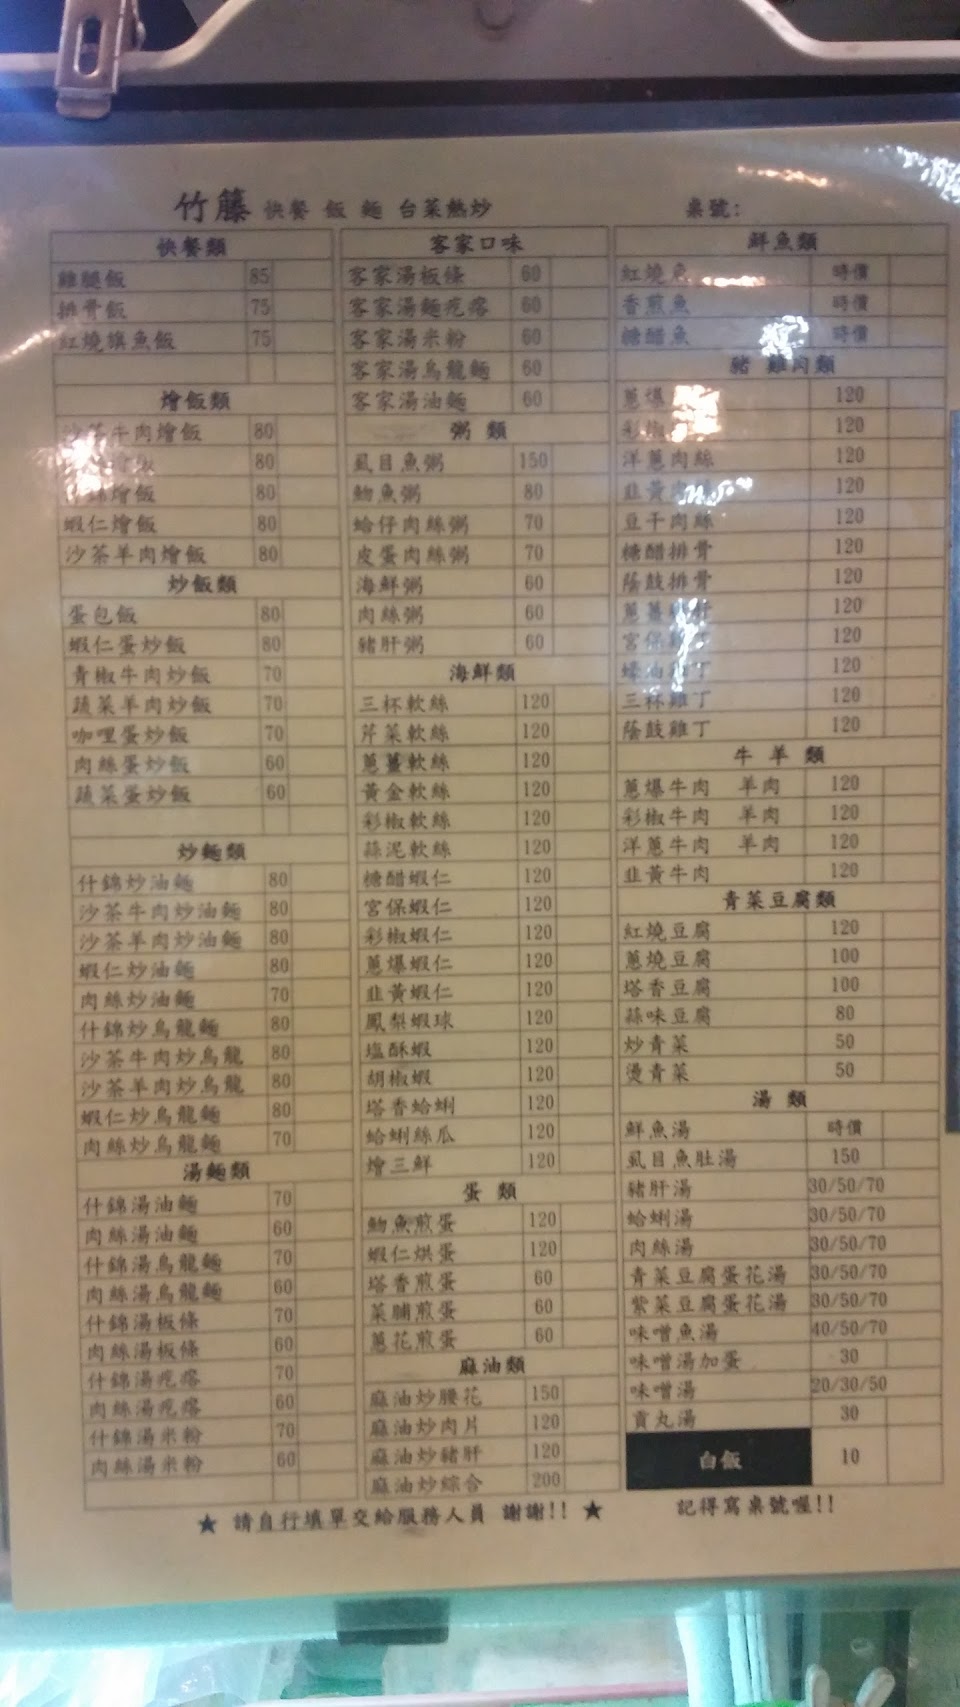 竹籐 快餐 飯 麵 台菜熱炒
桌號:
快餐類
雞腿飯 85
排骨飯 75
紅燒旗魚飯 75
燴飯類
沙茶牛肉燴飯 80
燴飯 80
什錦燴飯 80
蝦仁燴飯 80
沙茶羊肉燴飯 80
炒飯類
蛋包飯 80
蝦仁蛋炒飯 80
青椒牛肉炒飯 70
蔬菜羊肉炒飯 70
咖哩蛋炒飯 70
肉絲蛋炒飯 60
蔬菜蛋炒飯 60
炒麵類
什錦炒油麵 80
沙茶牛肉炒油麵 80
沙茶羊肉炒油麵 80
蝦仁炒油麵 80
肉絲炒油麵 70
什錦炒烏龍麵 80
沙茶牛肉炒烏龍 80
沙茶羊肉炒烏龍 80
蝦仁炒烏龍麵 80
肉絲炒烏龍麵 70
湯麵類
什錦湯油麵 70
肉絲湯油麵 60
什錦湯烏龍麵 70
肉絲湯烏龍麵 60
什錦湯板條 70
肉絲湯板條 60
什錦湯疙瘩 70
肉絲湯疙瘩 60
什錦湯米粉 70
肉絲湯米粉 60
客家口味
客家湯板條 60
客家湯麵疙瘩 60
客家湯米粉 60
客家湯烏龍麵 60
客家湯油麵 60
粥 類
虱目魚粥 150
魩魚粥 80
蛤仔肉絲粥 70
皮蛋肉絲粥 70
海鮮粥 60
肉絲粥 60
豬肝粥 60
海鮮類
三杯軟絲 120
芹菜軟絲 120
蔥薑軟絲 120
黃金軟絲 120
彩椒軟絲 120
蒜泥軟絲 120
糖醋蝦仁 120
宮保蝦仁 120
彩椒蝦仁 120
蔥爆蝦仁 120
韭黃蝦仁 120
鳳梨蝦球 120
塩酥蝦 120
胡椒蝦 120
塔香蛤蜊 120
蛤蜊絲瓜 120
燴三鮮 120
蛋 類
魩魚煎蛋 120
蝦仁烘蛋 120
塔香煎蛋 60
菜脯煎蛋 60
蔥花煎蛋 60
麻油類
麻油炒腰花 150
麻油炒肉片 120
麻油炒豬肝 120
麻油炒綜合 200
鮮魚類
紅燒魚 時價
香煎魚 時價
糖醋魚 時價
豬 雞肉類
蔥爆 120
彩椒 120
洋蔥肉絲 120
韭黃肉絲 120
豆干肉絲 120
糖醋排骨 120
蔭鼓排骨 120
蔥薑豬肝 120
宮保雞丁 120
蠔油雞丁 120
三杯雞丁 120
蔭鼓雞丁 120
牛 羊 類
蔥爆牛肉 羊肉 120
彩椒牛肉 羊肉 120
洋蔥牛肉 羊肉 120
韭黃牛肉 120
青菜豆腐類
紅燒豆腐 120
蔥燒豆腐 100
塔香豆腐 100
蒜味豆腐 80
炒青菜 50
燙青菜 50
湯 類
鮮魚湯 時價
虱目魚肚湯 150
豬肝湯 30/50/70
蛤蜊湯 30/50/70
肉絲湯 30/50/70
青菜豆腐蛋花湯 30/50/70
紫菜豆腐蛋花湯 30/50/70
味噌魚湯 40/50/70
味噌湯加蛋 30
味噌湯 20/30/50
貢丸湯 30
白飯 10
★ 請自行填單交給服務人員 謝謝!! ★ 記得寫桌號喔!!